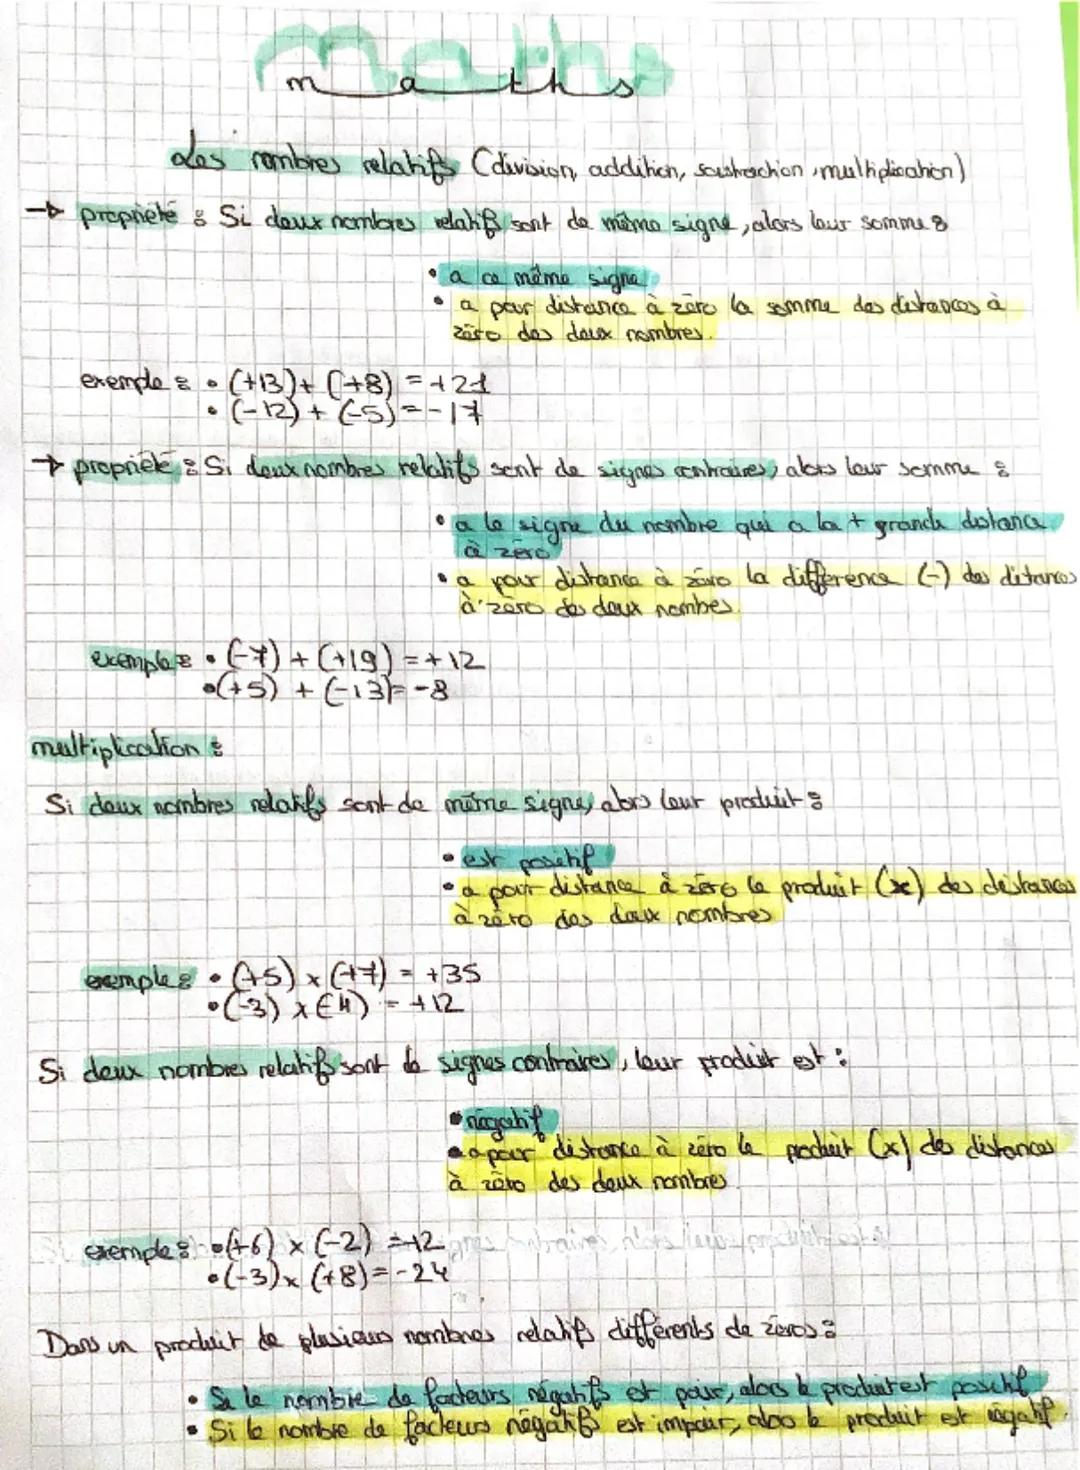 Maths
maths
Les nombres relatifs (division, addition, soustraction, multiplication)
→ propriété : Si deux nombres relatifs sont de même signe, alors leur somme :
• a ce même signe
• a pour distance à zéro la somme des distances à
zéro des deux nombres.
exemple : • (+13)+ (+8) = +21
• (-12) + (-5) = -17
→ propriété : Si deux nombres relatifs sont de signes contraires, alors leur somme :
• a le signe du nombre qui a la + grande distance
à zéro
• a pour distance à zéro la différence (-) des distances
à zéro des deux nombres.
exemple : • (-7) + (+19) = +12
• (+5) + (-13) = -8
multiplication :
Si deux nombres relatifs sont de même signe, alors leur produit :
• est positif
• a pour distance à zéro le produit (x) des distances
à zéro des deux nombres
exemple : • (+5) x (+7) = +35
• (-3) x (-4) = +12
Si deux nombres relatifs sont de signes contraires, leur produit est :
• négatif
• a pour distance à zéro le produit (x) des distances
à zéro des deux nombres.
exemple : • (+6) x (-2) = -12
• (-3) x (+8) = -24
Dans un produit de plusieurs nombres relatifs différents de zéros :
• Si le nombre de facteurs négatifs est paire, alors le produit est positif
• Si le nombre de facteurs négatifs est impair, alors le produit est négatif.